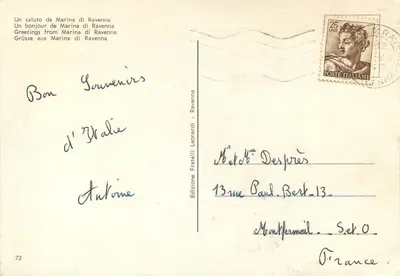 Un saluto da Marina di Ravenna
Un bonjour de Marina di Ravenna
Greetings from Marina di Ravenna
Grüsse aus Marina di Ravenna
Bon Souvenirs
d'Italie
Antoine
73
Edizione Fratelli Leonardi - Ravenna
25
LIRE
POSTE ITALIANE
M et Mme Desprès
13 rue Paul. Bert-13.
Montfermeil - S.et.O
France.